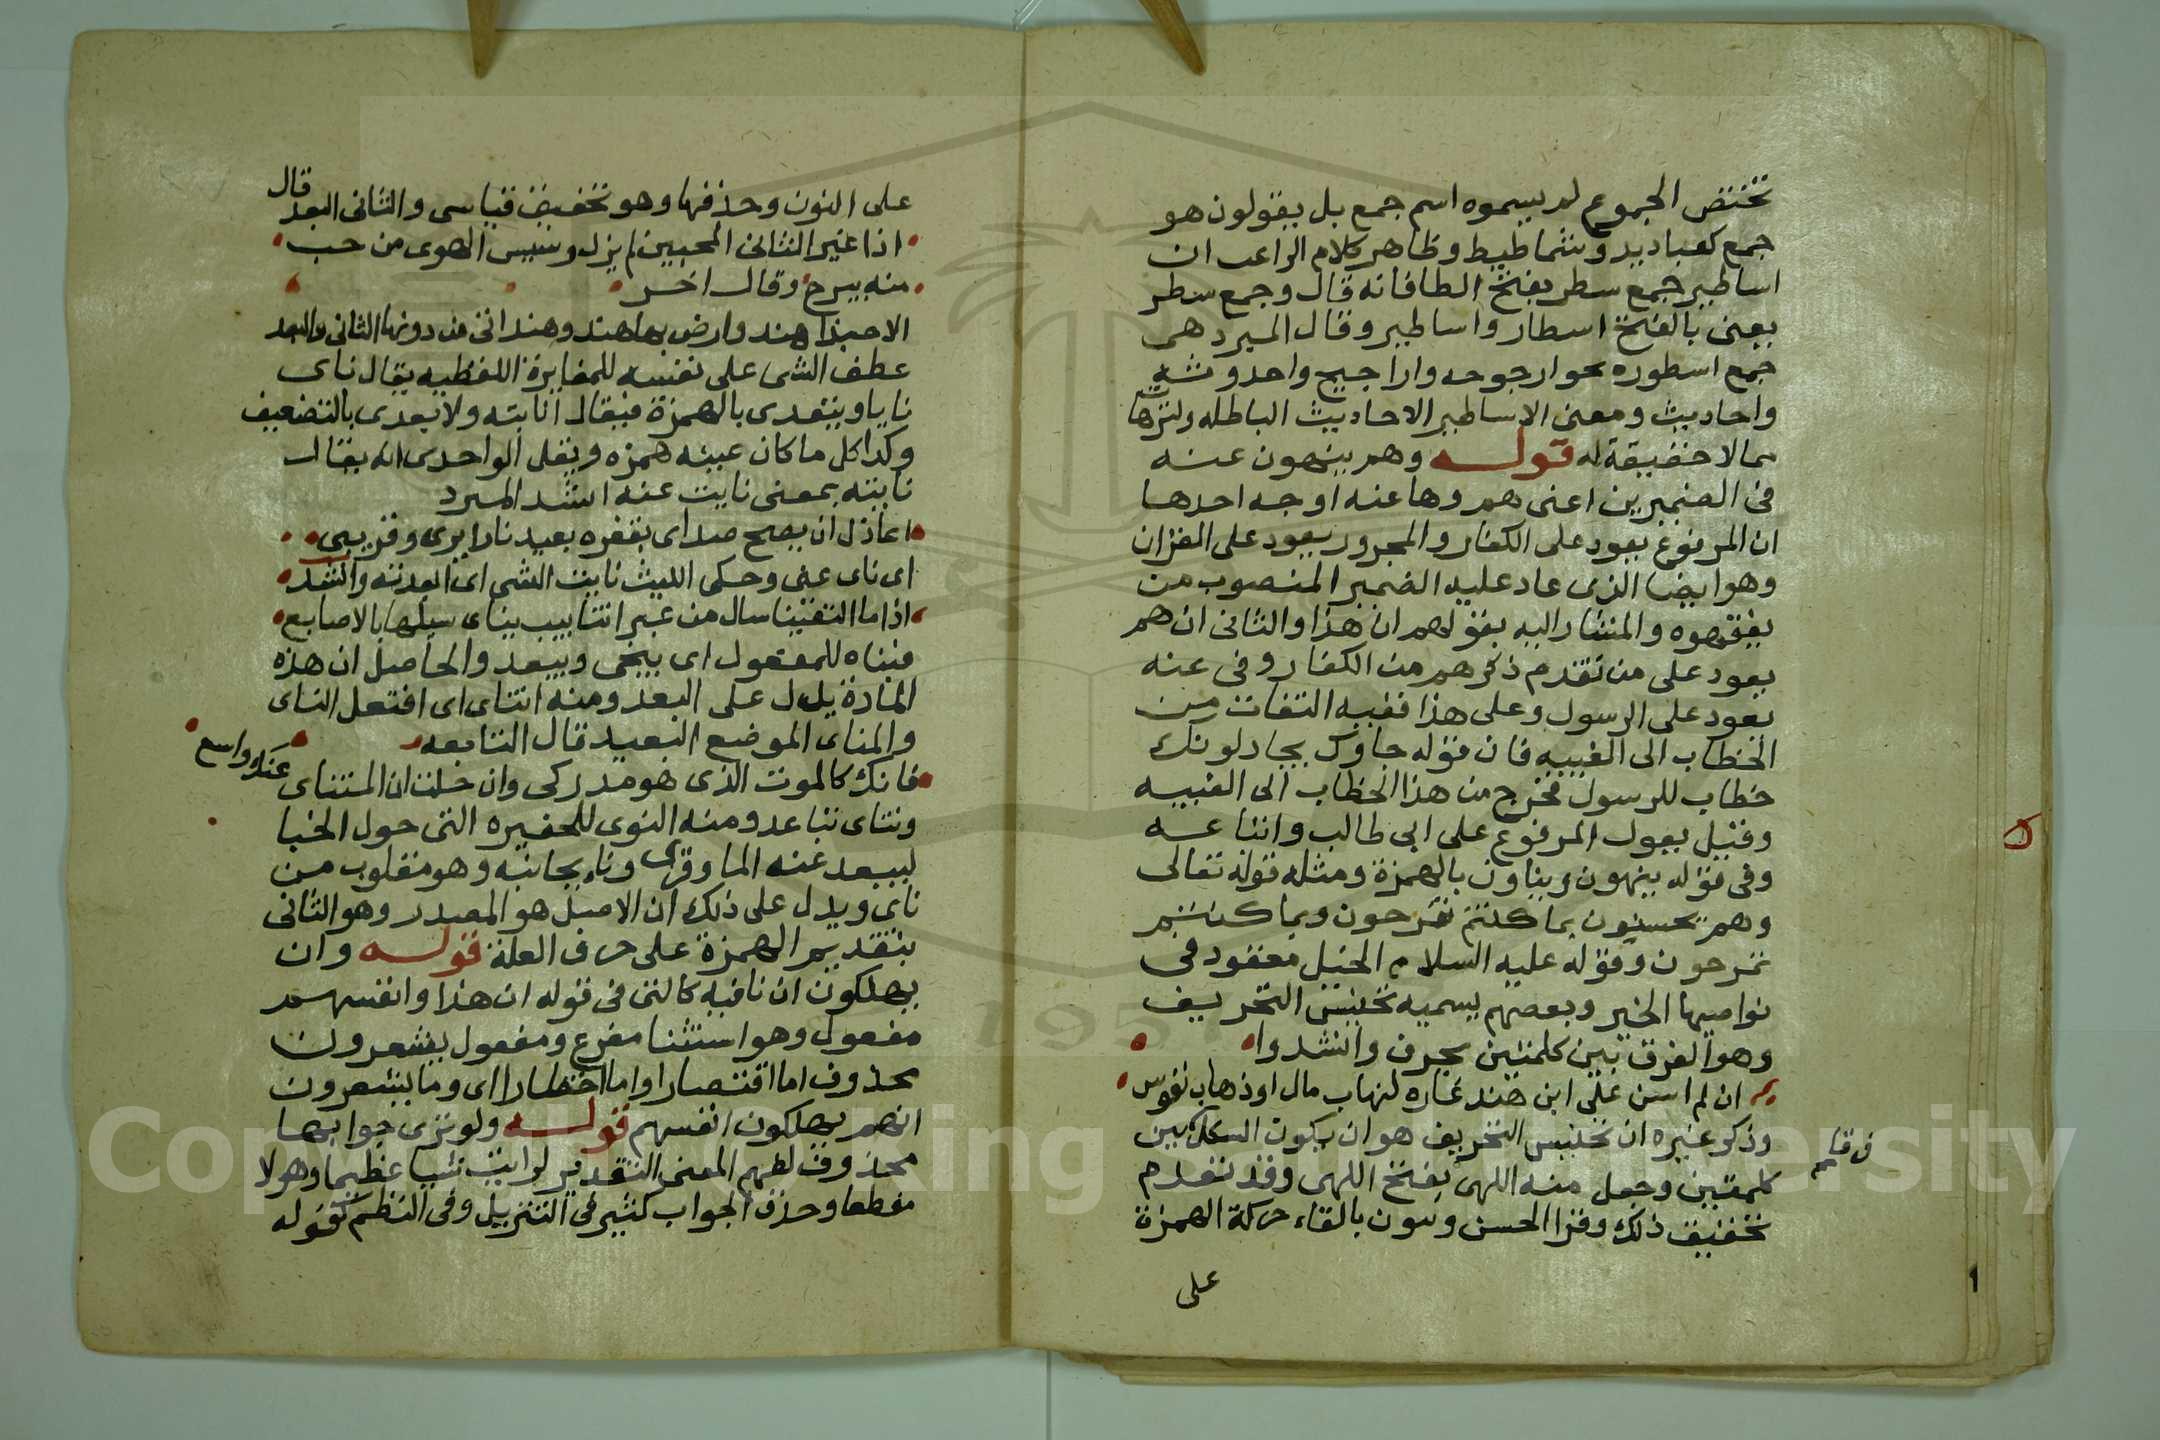 تختص الجموع لم يسموه اسم جمع بل يقولون هو
جمع كعباديد وشماطيط وظاهر كلام الراغب ان
اساطير جمع سطر بفتح الطا فانه قال وجمع سطر
يعنى بالفتح اسطار واساطير وقال المبرد هى
جمع اسطوره نحو ارجوحه واراجيح واحدوثه
واحاديث ومعنى الاساطير الاحاديث الباطله والترهات
مما لا حقيقة له قوله وهم ينهون عنه
فى الضميرين اعنى هم وها عنه اوجه احدها
ان المرفوع يعود على الكفار والمجرور يعود على القران
وهو ايضا الذى عاد عليه الضمير المنصوب من
يفقهوه والمشار اليه بقولهم ان هذا والثانى ان هم
يعود على من تقدم ذكرهم من الكفار وفى عنه
يعود على الرسول وعلى هذا ففيه التفات من
الخطاب الى الغيبه فان قوله جاوك يجادلونك
خطاب للرسول فخرج من هذا الخطاب الى الغيبه
وقيل يعول المرفوع على ابى طالب واتباعه
وفى قوله ينهون وينأون بالهمزة ومثله قوله تعالى
وهم يحسبون بما كنتم تفرحون وبما كنتم
تمرحون وقوله عليه السلام الخيل معقود فى
نواصيها الخير وبعضهم يسميه تجنيس التحريف
وهو الفرق بين كلمتين بحرف وانشدوا
ان لم اسن على ابن هند غاره لنهاب مال او ذهاب نفوس
وذكر غيره ان تجنيس التحريف هو ان يكون الشكل بين
كلمتين وجعل منه اللهى بفتح اللهى وقد تقدم
تخفيف ذلك وقرا الحسن وينون بالقاء حركة الهمزة
على
على النون وحذفها وهو تخفيف قياسى والثانى البعد قال
اذا غير الثانى المحبين لم يزل رسيس الهوى من حب
منه يبرح وقال اخر
الا حبذا هند وارض بها هند وهند اتى من دونها الثانى والبعد
عطف الشى على نفسه للمغايرة اللفظيه يقال ناى
نايا ويتعدى بالهمزة فيقال انايته ولا يعدى بالتضعيف
وكذا كل ما كان عينه همزه ونقل الواحدى انه يقال
نايته بمعنى نايت عنه انشد المبرد
اعاذل ان يصح صداى بقفره بعيد نارا برى وقريبى
اى ناى عنى وحكى الليث نايت الشى اى ابعدته وانشد
اذا ما التقينا سال من عبراتنا بيب يناى سيلها بالاصابع
فبناه للمفعول اى ينحى ويبعد والحاصل ان هذه
المادة يدل على البعد ومنه انتاى اى افتعل الناى
والمناى الموضع البعيد قال النابعه
فانك كالموت الذى هو مدركى وان خلت ان المنتاى عنك واسع
وتناى تباعد ومنه النوى للحفيره التى حول الخبا
ليبعد عنه الما وقرى وناء بجانبه وهو مقلوب من
ناى ويدل على ذلك ان الاصل هو المصدر وهو الثانى
بتقديم الهمزة على حرف العلة قوله وان
يهلكون ان نافيه كالتى فى قوله ان هذا وانفسهم
مفعول وهو استثنا مفرع ومفعول يشعرون
محذوف اما اقتصارا واما اختصارا اى وما يشعرون
انهم يهلكون انفسهم قوله ولو ترى جوابها
محذوف لفهم المعنى التقدير لرايت شيا عظيما وهولا
مفظعا وحذف الجواب كثير فى التنزيل وفى النظم كقوله